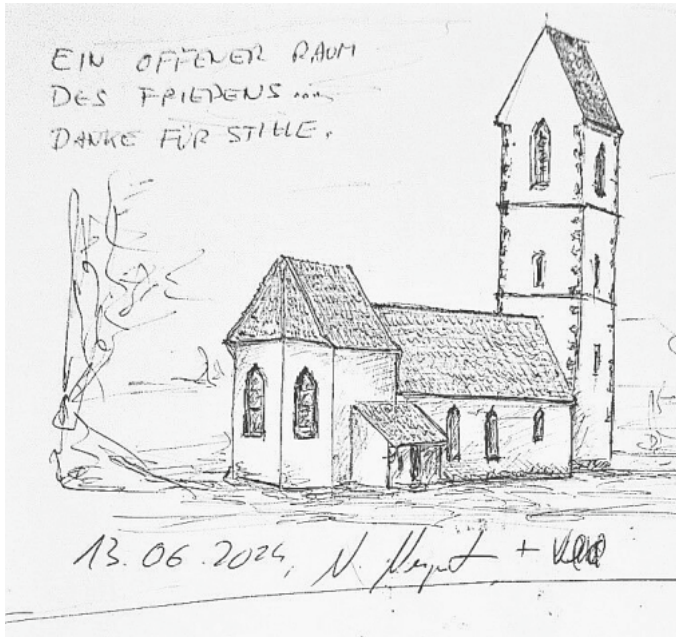 EIN OFFENER RAUM
DES FRIEDENS ...
DANKE FÜR STILLE.
13.06.2024, N. +